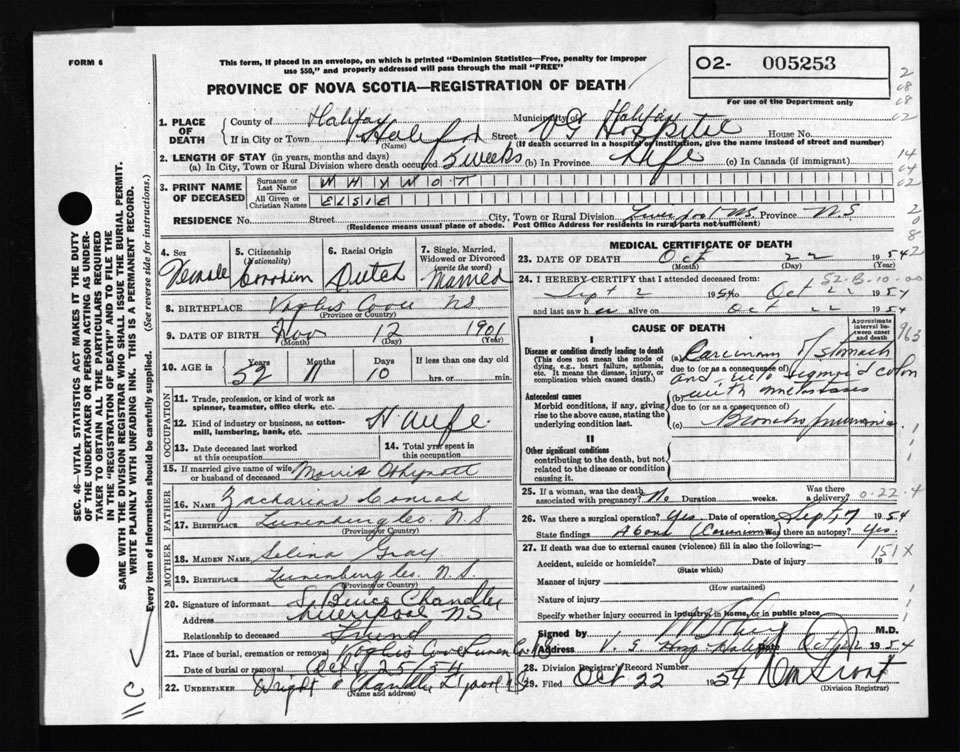 FORM 6
This form, if placed in an envelope, on which is printed "Dominion Statistics—Free, penalty for improper
use $50," and properly addressed will pass through the mail "FREE"
O2- 005253
For use of the Department only
PROVINCE OF NOVA SCOTIA—REGISTRATION OF DEATH
1. PLACE OF DEATH
County of Halifax Municipality of Halifax
If in City or Town Halifax Street VG Hospital House No.
(Name) (If death occurred in a hospital or institution, give the name instead of street and number)
2. LENGTH OF STAY (in years, months and days)
(a) In City, Town or Rural Division where death occurred 5 weeks (b) In Province Life (c) In Canada (if immigrant)
3. PRINT NAME OF DECEASED
Surname or Last Name WHYNOT
All Given or Christian Names ELSIE
RESIDENCE No. Street City, Town or Rural Division Liverpool NS Province NS
(Residence means usual place of abode. Post Office Address for residents in rural parts not sufficient)
4. Sex Female
5. Citizenship (Nationality) Canadian
6. Racial Origin Dutch
7. Single, Married, Widowed or Divorced (write the word) Married
8. BIRTHPLACE Voglers Cove NS
(Province or Country)
9. DATE OF BIRTH Nov 12 1901
(Month) (Day) (Year)
10. AGE in Years 52 Months 11 Days 10 If less than one day
hrs. or min.
OCCUPATION
11. Trade, profession, or kind of work as
spinner, teamster, office clerk, etc.
12. Kind of industry or business, as cotton-
mill, lumbering, bank, etc. H Wife
13. Date deceased last worked at this occupation
14. Total yrs. spent in this occupation
15. If married give name of wife or husband of deceased Morris Whynott
FATHER
16. NAME Zacharias Conrad
17. BIRTHPLACE Lunenburg Co. N.S
(Province or Country)
MOTHER
18. MAIDEN NAME Selina Gray
19. BIRTHPLACE Lunenburg Co. N.S.
(Province or Country)
20. Signature of informant Bruce Chandler
Address Liverpool NS
Relationship to deceased Friend
21. Place of burial, cremation or removal Voglers Cove Lunen Co. NS
Date of burial or removal Oct 25/54
22. UNDERTAKER Wright & Chandler L'pool N.S
(Name and address)
MEDICAL CERTIFICATE OF DEATH
23. DATE OF DEATH Oct 22 1954
(Month) (Day) (Year)
24. I HEREBY CERTIFY that I attended deceased from:
Sept 2 1954 to Oct 22 1954
and last saw her alive on Oct 22 1954
CAUSE OF DEATH
Approximate interval between onset and death
I
Disease or condition directly leading to death
(This does not mean the mode of
dying, e.g., heart failure, asthenia,
etc. It means the disease, injury, or
complication which caused death.)
(a) Carcinoma of stomach
due to (or as a consequence of)
and into sigmoid colon
Antecedent causes
Morbid conditions, if any, giving
rise to the above cause, stating the
underlying condition last.
(b) with metastasis
due to (or as a consequence of)
(c) Bronchopneumonia
II
Other significant conditions
contributing to the death, but not
related to the disease or condition
causing it.
25. If a woman, was the death associated with pregnancy? No Duration weeks. Was there a delivery?
26. Was there surgical operation? Yes Date of operation Sept 7 1954
State findings Above Carcinoma Was there an autopsy? Yes.
27. If death was due to external causes (violence) fill in also the following:—
Accident, suicide or homicide? Date of injury 19
(State which)
Manner of injury
(How sustained)
Nature of injury
Specify whether injury occurred in industry, in home, or in public place
Signed by M.D.
Address V. G Hosp Halifax Date Oct 22 1954
28. Division Registrar's Record Number
29. Filed Oct 22 1954
(Division Registrar)
SEC. 46—VITAL STATISTICS ACT MAKES IT THE DUTY
OF THE UNDERTAKER OR PERSON ACTING AS UNDER-
TAKER TO OBTAIN ALL THE PARTICULARS REQUIRED
IN THE "REGISTRATION OF DEATH" AND TO FILE THE
SAME WITH THE DIVISION REGISTRAR WHO SHALL ISSUE THE BURIAL PERMIT.
WRITE PLAINLY WITH UNFADING INK. THIS IS A PERMANENT RECORD.
Every item of information should be carefully supplied. (See reverse side for instructions.)
52-B-10-00
963
0-22-4
151X